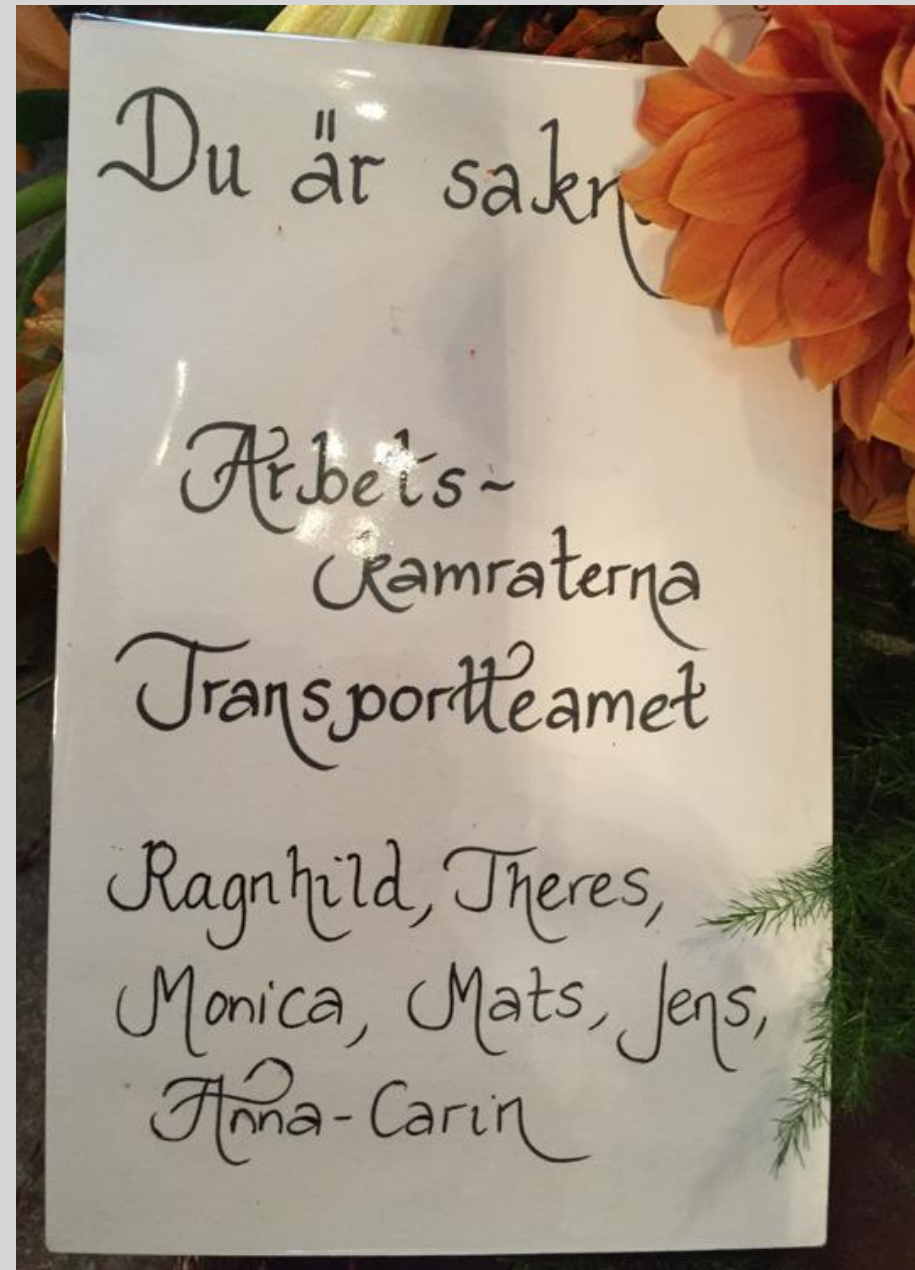 Du är
Arbets~
kamraterna
Transportteamet
Ragnhild, Theres,
Monica, Mats, Jens,
Anna-Carin